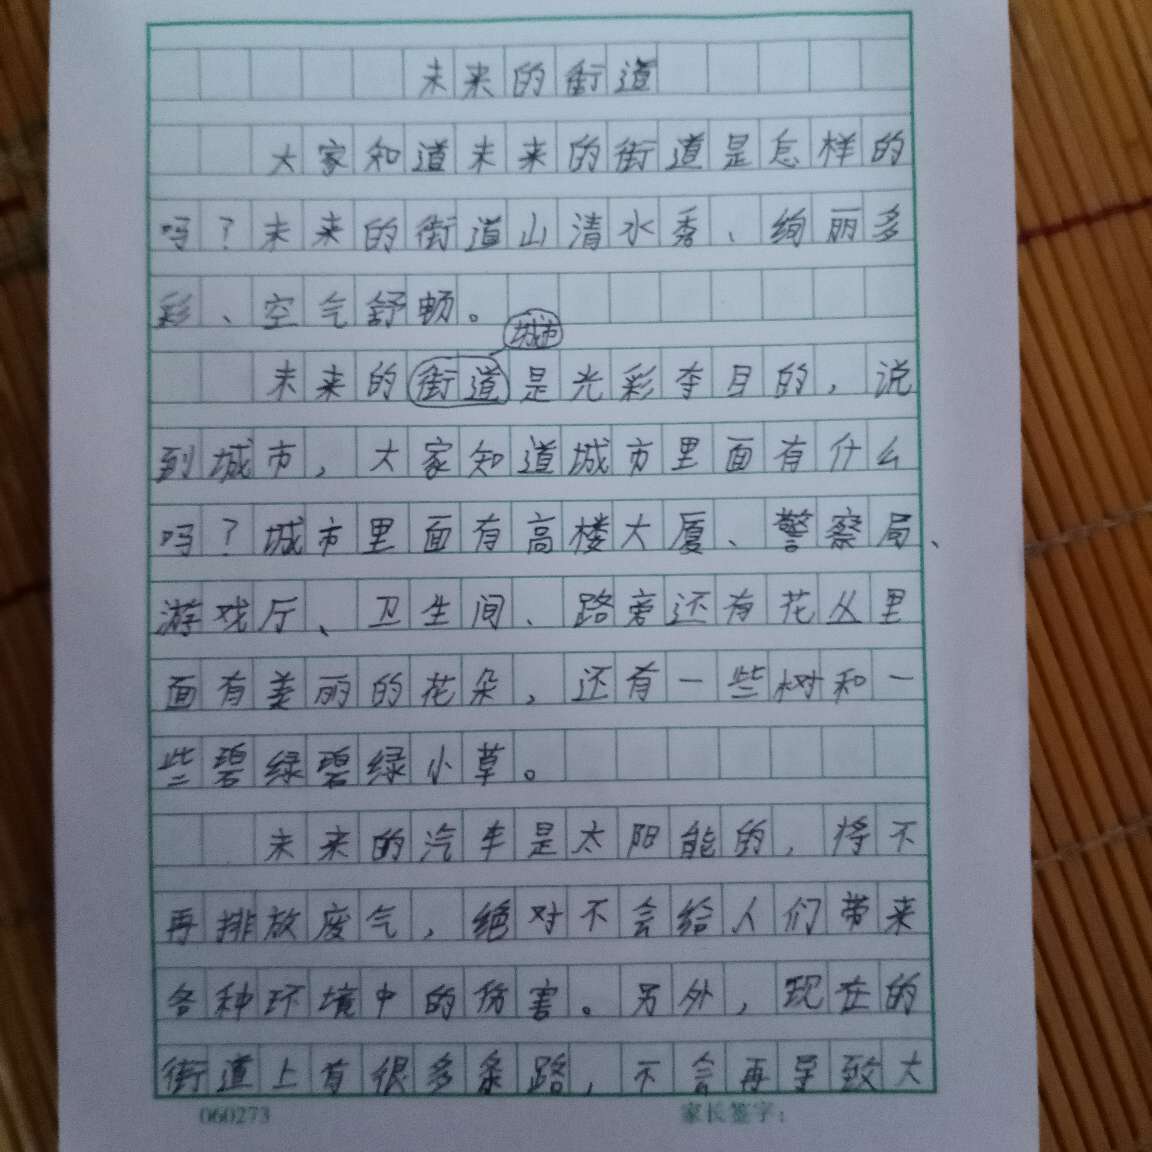 未来的街道
大家知道未来的街道是怎样的
吗？未来的街道山清水秀、绚丽多
彩、空气舒畅。
城市
未来的街道是光彩夺目的，说
到城市，大家知道城市里面有什么
吗？城市里面有高楼大厦、警察局、
游戏厅、卫生间、路旁还有花丛里
面有美丽的花朵，还有一些树和一
些碧绿碧绿小草。
未来的汽车是太阳能的，将不
再排放废气，绝对不会给人们带来
各种环境中的伤害。另外，现在的
街道上有很多条路，不会再导致大
060273 家长签字：